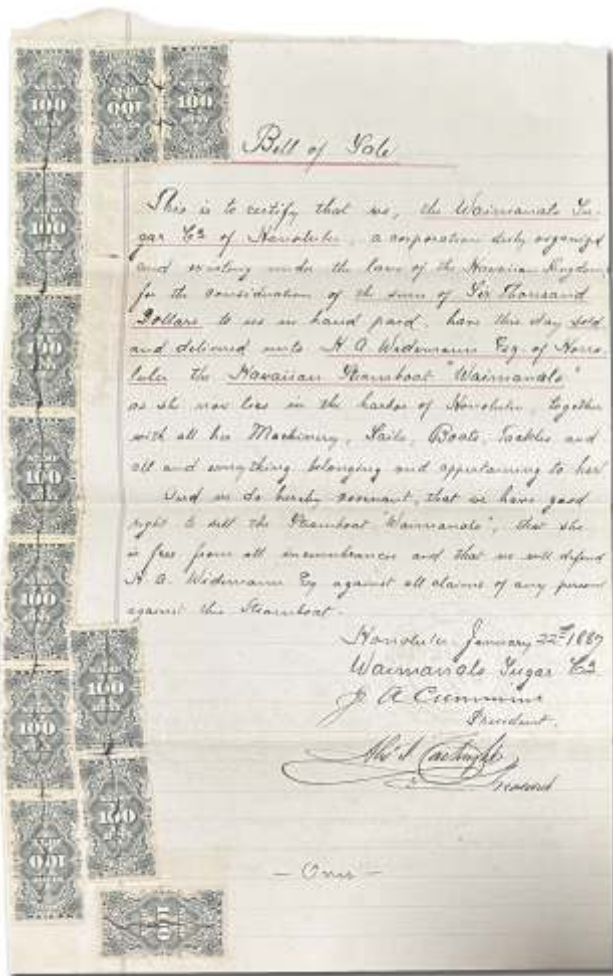 Bill of Sale
This is to certify that we, the Waimanalo Su-
gar Co of Honolulu, a corporation duly organized
and existing under the laws of the Hawaiian Kingdom
for the consideration of the sum of Six Thousand
Dollars to us in hand paid, have this day sold
and delivered unto H. A. Widemann Esq. of Hono-
lulu the Hawaiian Steamboat "Waimanalo"
as she now lies in the harbor of Honolulu, together
with all her Machinery, Sails, Boats, Tackles and
all and everything belonging and appertaining to her
And we do hereby covenant, that we have good
right to sell the Steamboat "Waimanalo", that she
is free from all incumbrances and that we will defend
H. A. Widemann Esq against all claims of any person
against the Steamboat.
Honolulu January 22d 1887
Waimanalo Sugar Co
J A Cummins
President.
Cartwright
100
100
100
100
100
100
100
100
100
100
100
100